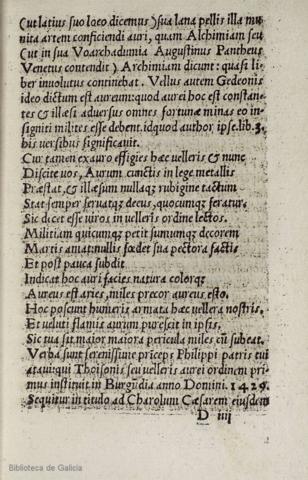 (ut latius suo loco dicemus) sua lana pellis illa mu
nita artem conficiendi auri, quam Alchimiam seu
(ut in sua Voarchadumia Augustinus Pantheus
Venetus contendit) Archimiam dicunt: quasi li
ber involutus continebat. Vellus autem Gedeonis
ideo dictum est aureum: quod aurei hoc est constan-
tes & illæsi adversus omnes fortunæ minas eo in-
signiti milites esse debent. id quod author ipse. lib. 3.
his versibus significavit.
Cur tamen ex auro effigies hæc velleris & nunc
Discite vos, Aurum cunctis in lege metallis
Præstat, & illæsum nullaq; rubigine tactum
Stat semper servatq; decus, quocunq; feratur.
Sic decet esse viros in velleris ordine lectos.
Militiam quicumq; petit sumumq; decorem
Martis amat: nullis fœdet sua pectora factis
Et post pauca subdit
Indicat hoc auri facies natura colorq;
Aureus est aries, miles precor aureus esto.
Hoc poscunt humeris armata hæc vellera nostris.
Et veluti flamis aurum purescit in ipsis,
Sic tua sit maior maiora pericula miles cū subeat.
Verba sunt serenissime prīceps Philippi patris tui
atavi: qui Thoisonis seu velleris aurei ordinem pri
mus instituit in Burgūdia anno Domini. 1429.
Sequitur in titulo ad Charolum Cæsarem eiusdem
D iiij
Biblioteca de Galicia